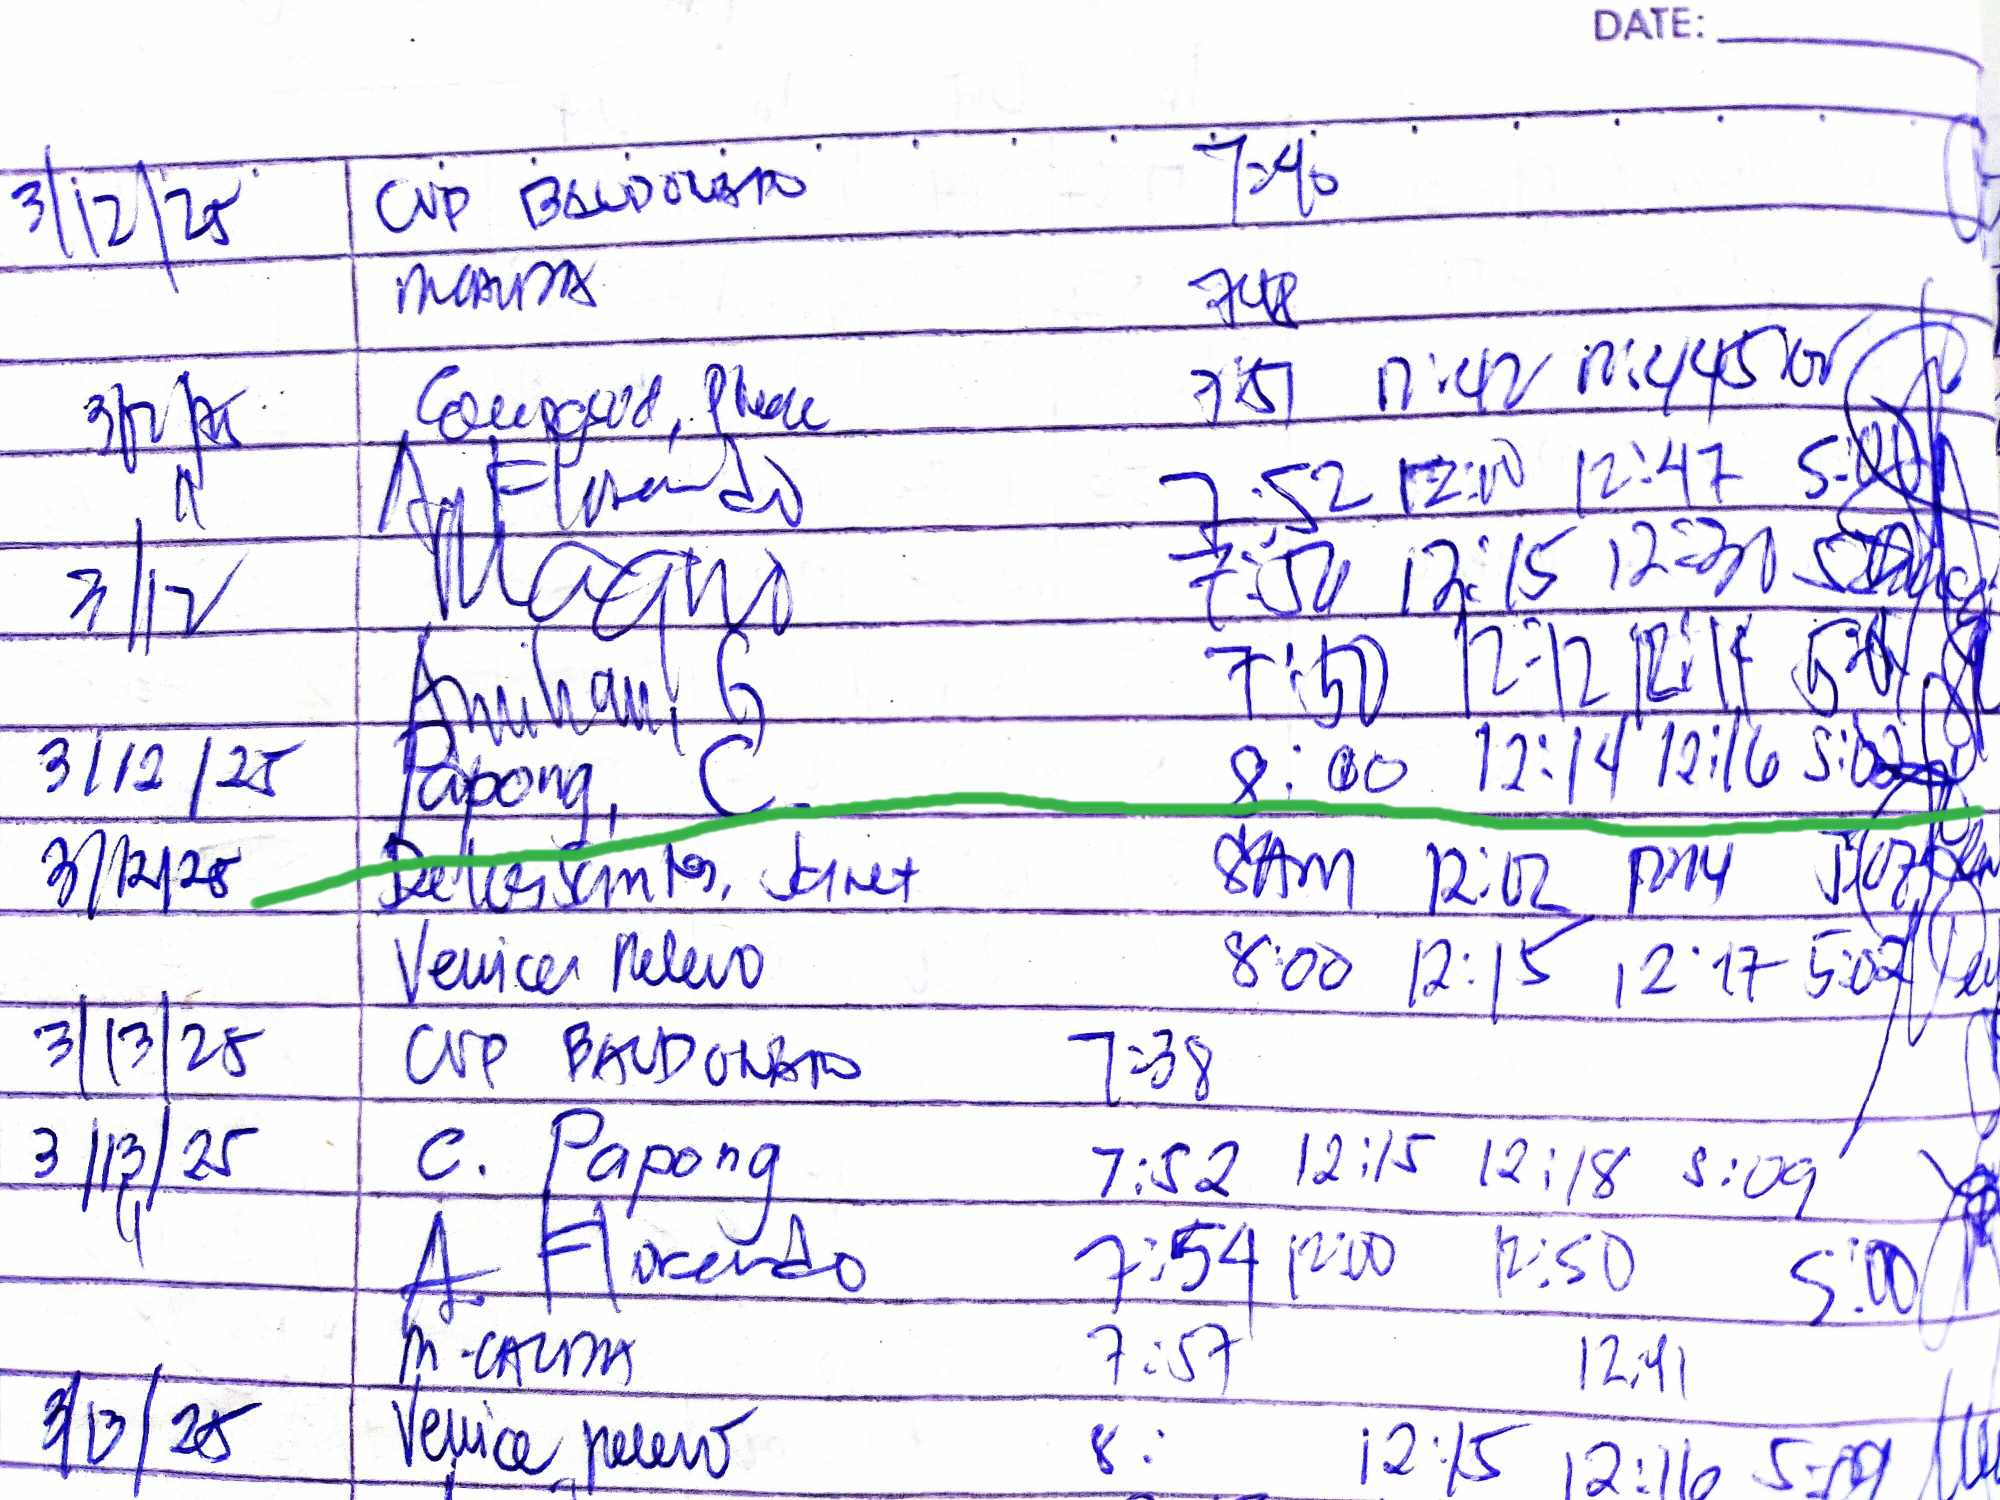 DATE:
3/12/25 CVP BAUDONADO 7:40
748
3/12/25 7:51 12:42 12:445
" A. Florendo 7:52 12:00 12:47 5:00
3/12 Magno 7:50 12:15 12:30
Anuhan, G 7:50 12:12 12:14
3/12/25 Papong, C. 8:00 12:14 12:16 5:02
3/12/25 Delos Santos, Janet 8AM 12:02 12:14 5:07
Venice Melevo 8:00 12:15 12:17 5:02
3/13/25 CVP BAUDONADO 7:38
3/13/25 C. Papong 7:52 12:15 12:18 5:09
" A. Florendo 7:54 12:00 12:50 5:00
7:57 12:41
3/13/25 Venice Melevo 8: 12:15 12:16 5:09